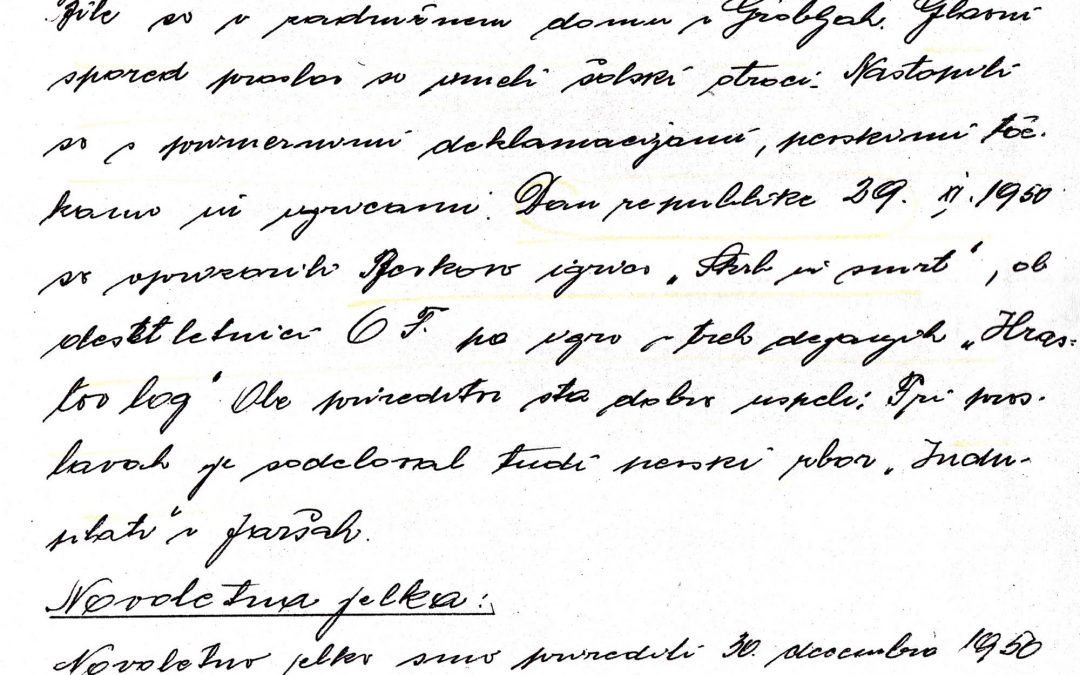 žile so v zadružnem domu v Grobljah. Glavni
spored proslav so imeli šolski otroci. Nastopili
so s primernimi deklamacijami, pevskimi toč-
kami in igricami. Dan republike 29. XI. 1950
so uprizorili Bevkovo igrico „Skrb in smrt“, ob
desetletnici OF. pa igro v treh dejanjih „Hras-
tov log“ Obe prireditvi sta dobro uspeli. Pri pros-
lavah je sodeloval tudi pevski zbor „Indu-
plati“ v Jaršah.
Novoletna jelka:
Novoletno jelko smo priredili 30. decembra 1950